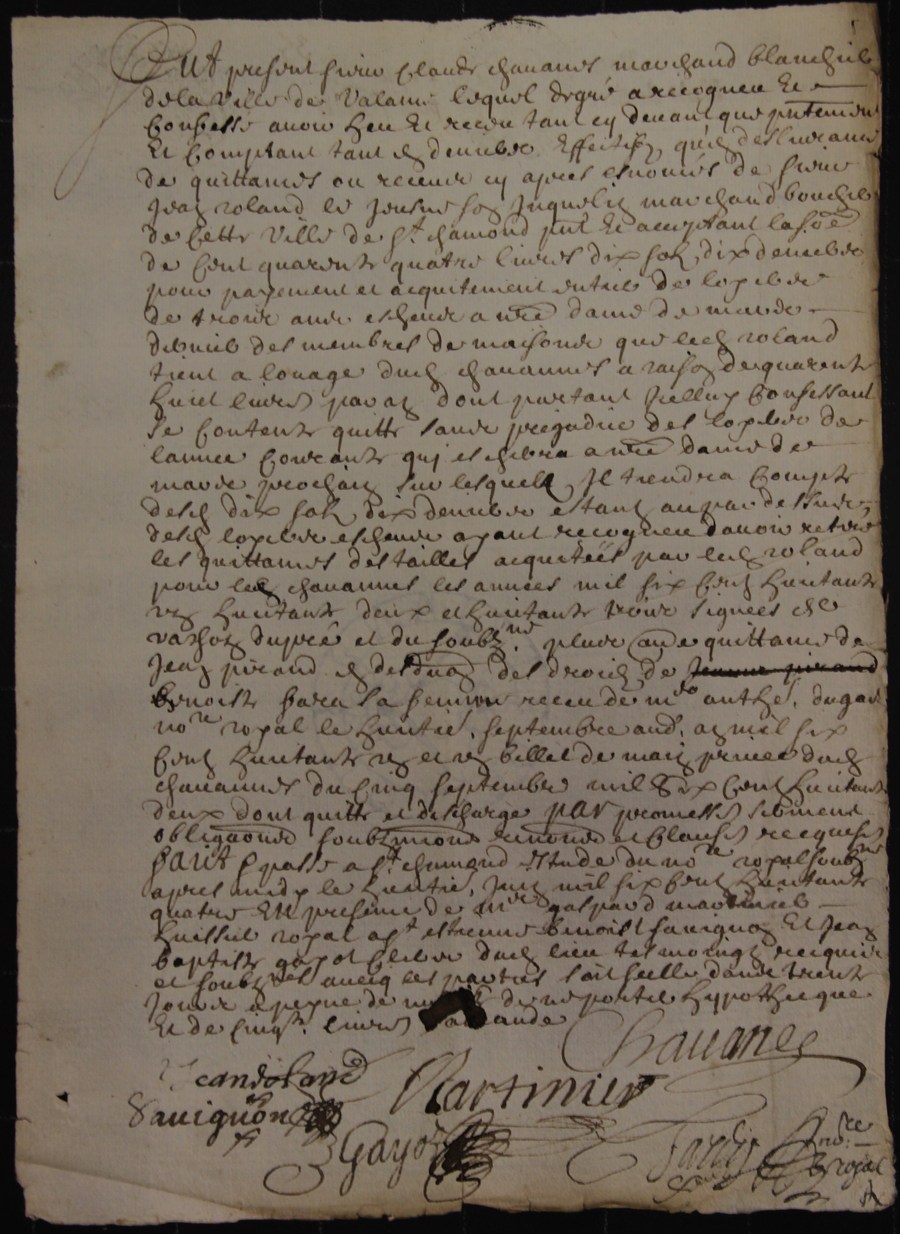 Fut present sieur Claude chavanes marchand blanchier
de la ville de Valance lequel de gré a recogneu et
Confesse avoir heu et receu tant cy devant que pntement
Et Comptant tant en deniers effectifz qu'en deslivrance
de quittances ou receus cy apres esnoncés de sieur
Jean roland le jeusne filz marchand boucher
de cette ville de St chamond pnt et acceptant la some
de Cent quarente quatre livres dix solz dix deniers
pour payement et acquitement entier de loyers
de trois ans escheus a nre dame de mars
dernier des membres de maisons que led roland
tient a louage dud chavannes a raison de quarente
huict livres par an dont partant icelluy Confessant
se Contente quitte sans prejudice des loyers de
lannee Courante qui eschera a nre dame de
mars prochain sur lesquelz Il tiendra Compte
desd dix solz dix deniers estant au par dessus
desd loyers escheus ayant recogneu davoir retiré
les quittances des tailles acquitées par led roland
pour led chavannes les annees mil six Cent huitante
un huitante deux et huitante trois signees de
dupré et du soubzné plus une quittance de
Jean pirand des droits de Jeanne pirand
benoiste sa femme receu de me dugas
nore royal le huitie septembre aud an mil six
Cent huitante un et un billet de main privee dud
chavannes du Cinq septembre mil Six Cent huitante
deux dont quitte et descharge par promesses serment
obligaons soubzmions renonons et Clauses requises
fait et passé a St chamond estude du nore royal soubzné
apres midy le huitie juin mil six Cent huitante
quatre En presence de me gaspard martinier
huissier royal et sr estienne benoist sauignon Et Jean
baptiste gayot Clerc dud lieu tesmoings requis
et soubznes avecq les parties soit scelle dans trente
jours a peyne de ne porter hypotheque
Et de Cinqte livres damande
Chauanes
Jean Roland
Martinier
Sauignon
Gayot
Jardin nore
royal